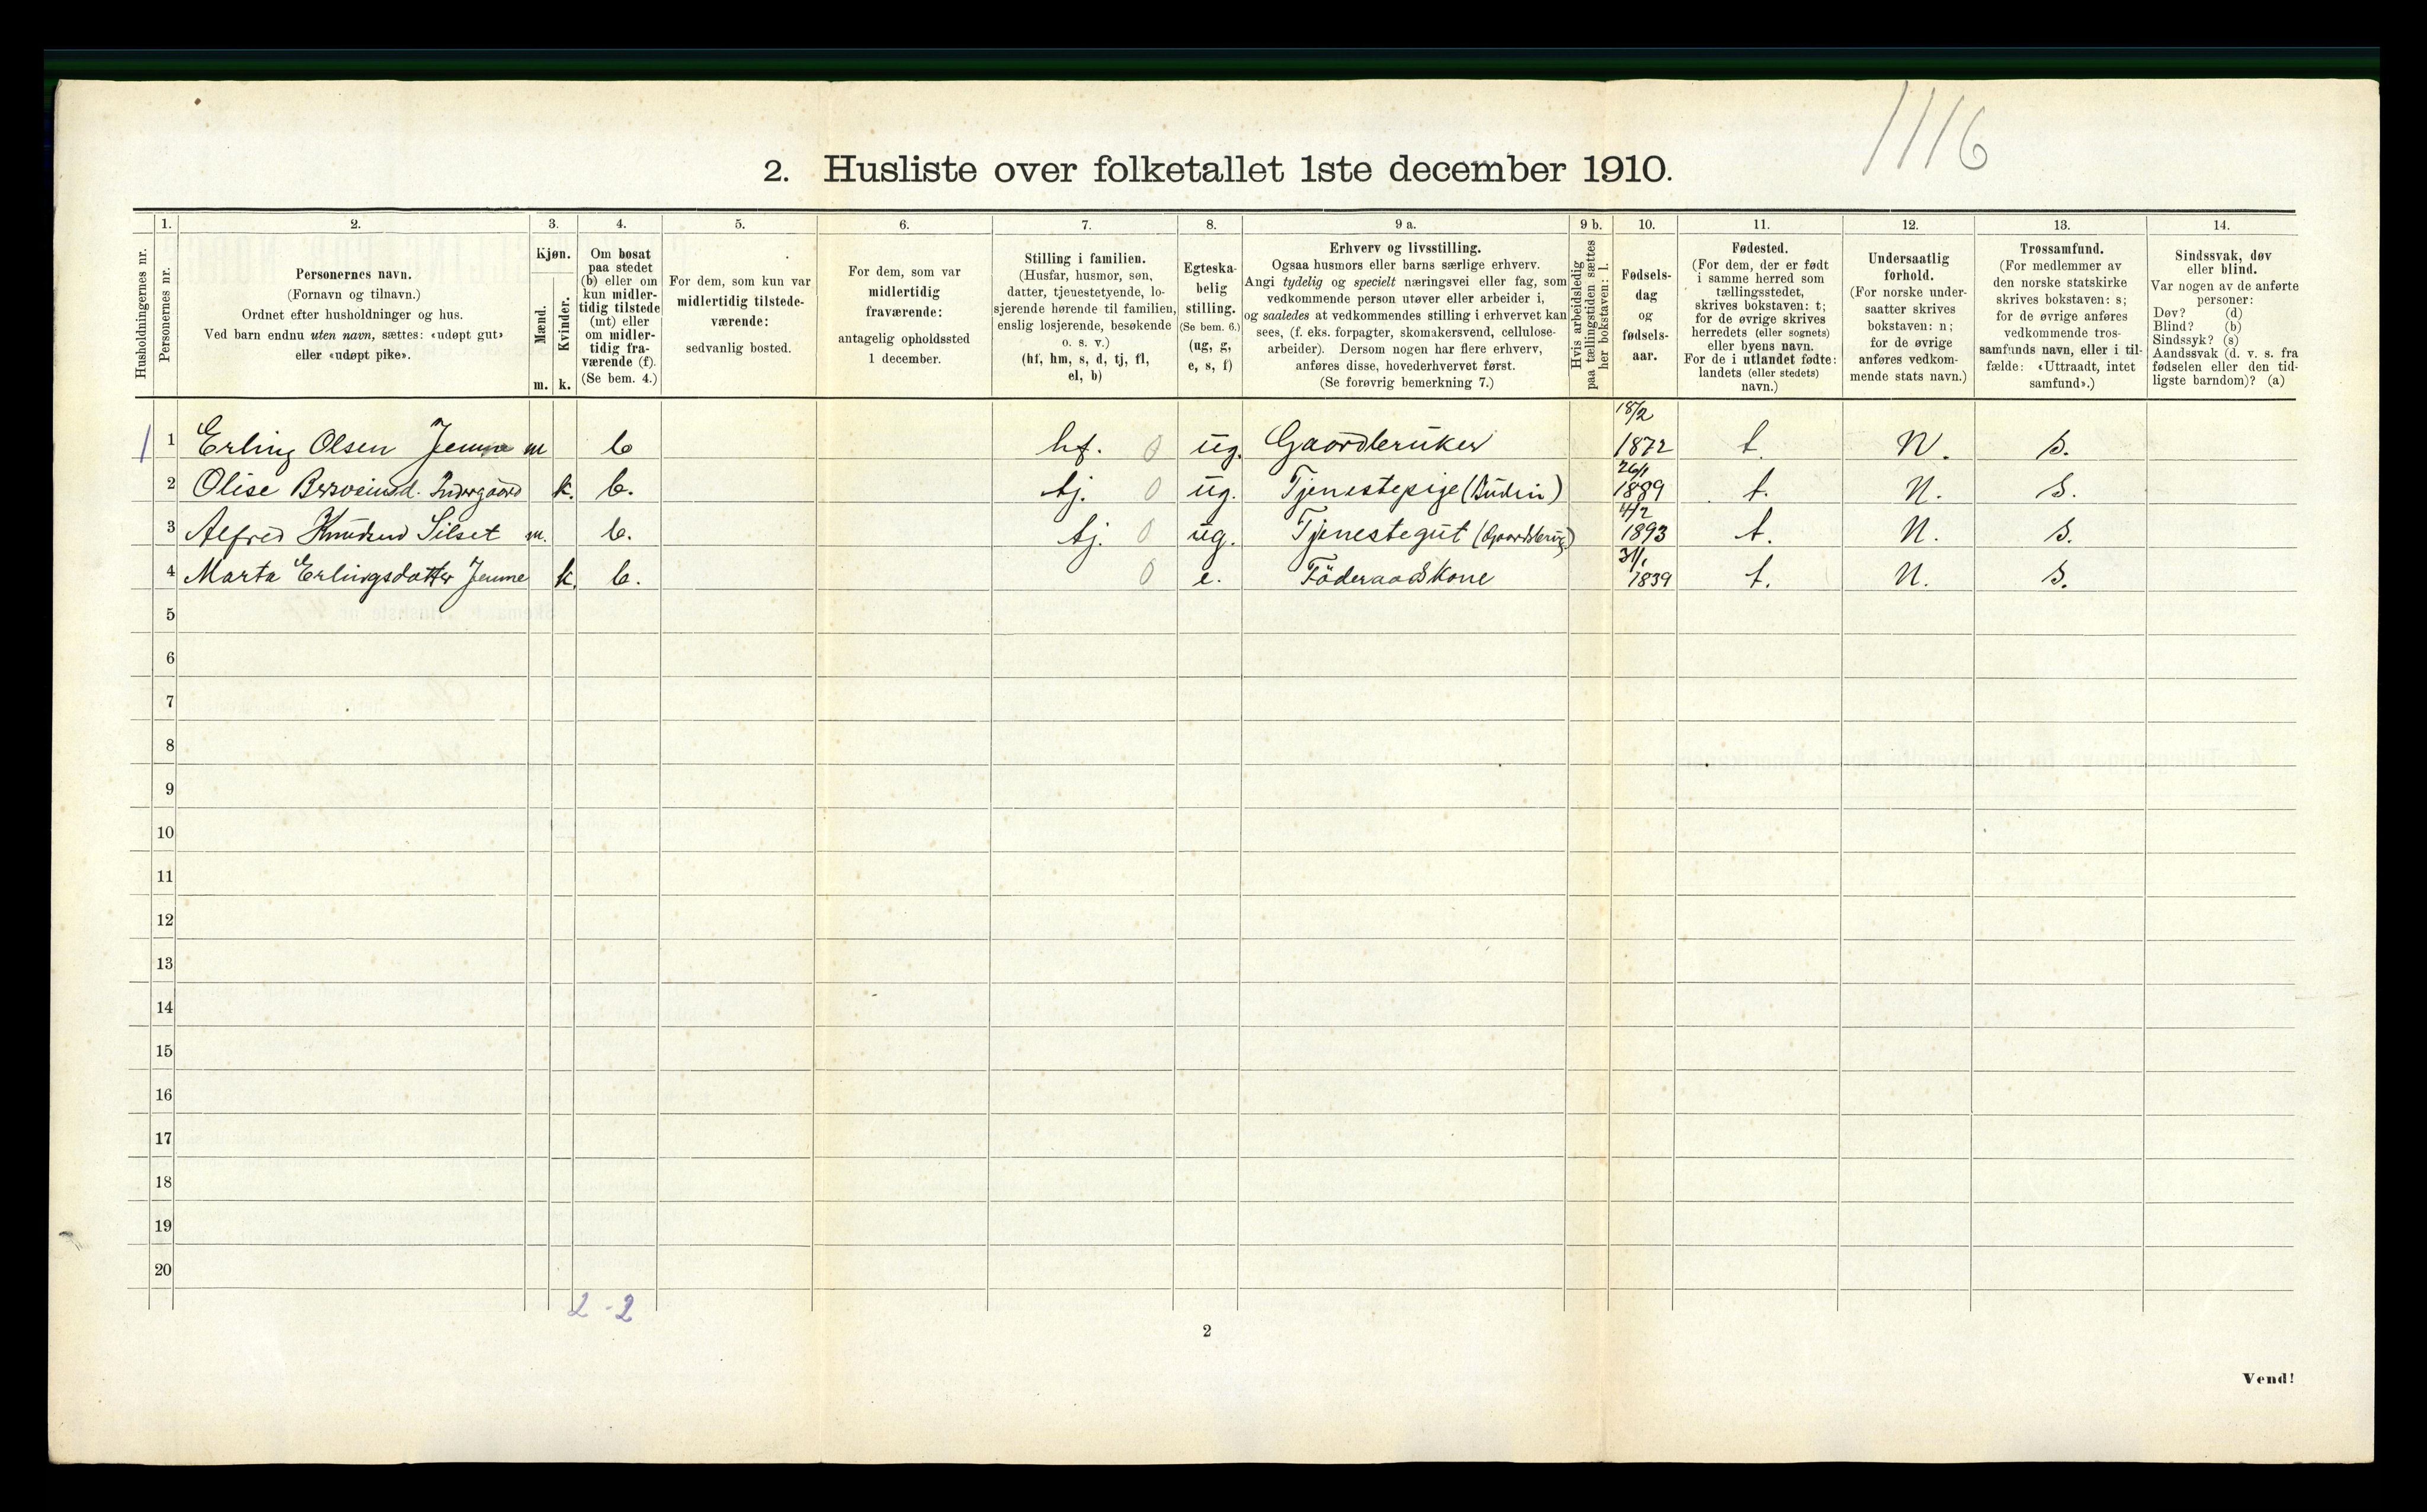 1116
2. Husliste over folketallet 1ste december 1910.
Husholdningernes nr.
1.
Personernes nr.
2.
Personernes navn.
(Fornavn og tilnavn.)
Ordnet efter husholdninger og hus.
Ved barn endnu uten navn, sættes: «udøpt gut»
eller «udøpt pike».
3.
Kjøn.
Mænd.
Kvinder.
m. k.
4.
Om bosat
paa stedet
(b) eller om
kun midler-
tidig tilstede
(mt) eller
om midler-
tidig fra-
værende (f).
(Se bem. 4.)
5.
For dem, som kun var
midlertidig tilstede-
værende:
sedvanlig bosted.
6.
For dem, som var
midlertidig
fraværende:
antagelig opholdssted
1 december.
7.
Stilling i familien.
(Husfar, husmor, søn,
datter, tjenestetyende, lo-
sjerende hørende til familien,
enslig losjerende, besøkende
o. s. v.)
(hf, hm, s, d, tj, fl,
el, b)
8.
Egteska-
belig
stilling.
(Se bem. 6.)
(ug, g,
e, s, f)
9 a.
Erhverv og livsstilling.
Ogsaa husmors eller barns særlige erhverv.
Angi tydelig og specielt næringsvei eller fag, som
vedkommende person utøver eller arbeider i,
og saaledes at vedkommendes stilling i erhvervet kan
sees, (f. eks. forpagter, skomakersvend, cellulose-
arbeider). Dersom nogen har flere erhverv,
anføres disse, hovederhvervet først.
(Se forøvrig bemerkning 7.)
9 b.
Hvis arbeidsledig
paa tællingstiden sættes
her bokstaven: l.
10.
Fødsels-
dag
og
fødsels-
aar.
11.
Fødested.
(For dem, der er født
i samme herred som
tællingsstedet,
skrives bokstaven: t;
for de øvrige skrives
herredets (eller sognets)
eller byens navn.
For de i utlandet fødte:
landets (eller stedets)
navn.)
12.
Undersaatlig
forhold.
(For norske under-
saatter skrives
bokstaven: n;
for de øvrige
anføres vedkom-
mende stats navn.)
13.
Trossamfund.
(For medlemmer av
den norske statskirke
skrives bokstaven: s;
for de øvrige anføres
vedkommende tros-
samfunds navn, eller i til-
fælde: «Uttraadt, intet
samfund».)
14.
Sindssvak, døv
eller blind.
Var nogen av de anførte
personer:
Døv? (d)
Blind? (b)
Sindssyk? (s)
Aandssvak (d. v. s. fra
fødselen eller den tid-
ligste barndom)? (a)
18/2
1 1 Erling Olsen Jemne m b hf. 0 ug. Gaardbruker 1872 t. N. s.
26/1
2 Olise k. b. tj. 0 ug. Tjenestepige (Budeie) 1889 t. N. s.
4/2
3 Alfred Knudsen Silset m. b. tj. 0 ug. Tjenestegut (Gaardsbrug) 1893 t. N. s.
31/1
4 Marta Erlingsdatter Jemne k. b. 0 e. Föderaadskone 1839 t. N. s.
5
6
7
8
9
10
11
12
13
14
15
16
17
18
19
20
2 - 2
2
Vend!